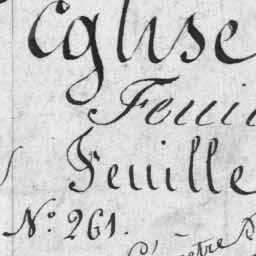 Eglise
Feui
Feuille
No. 261.